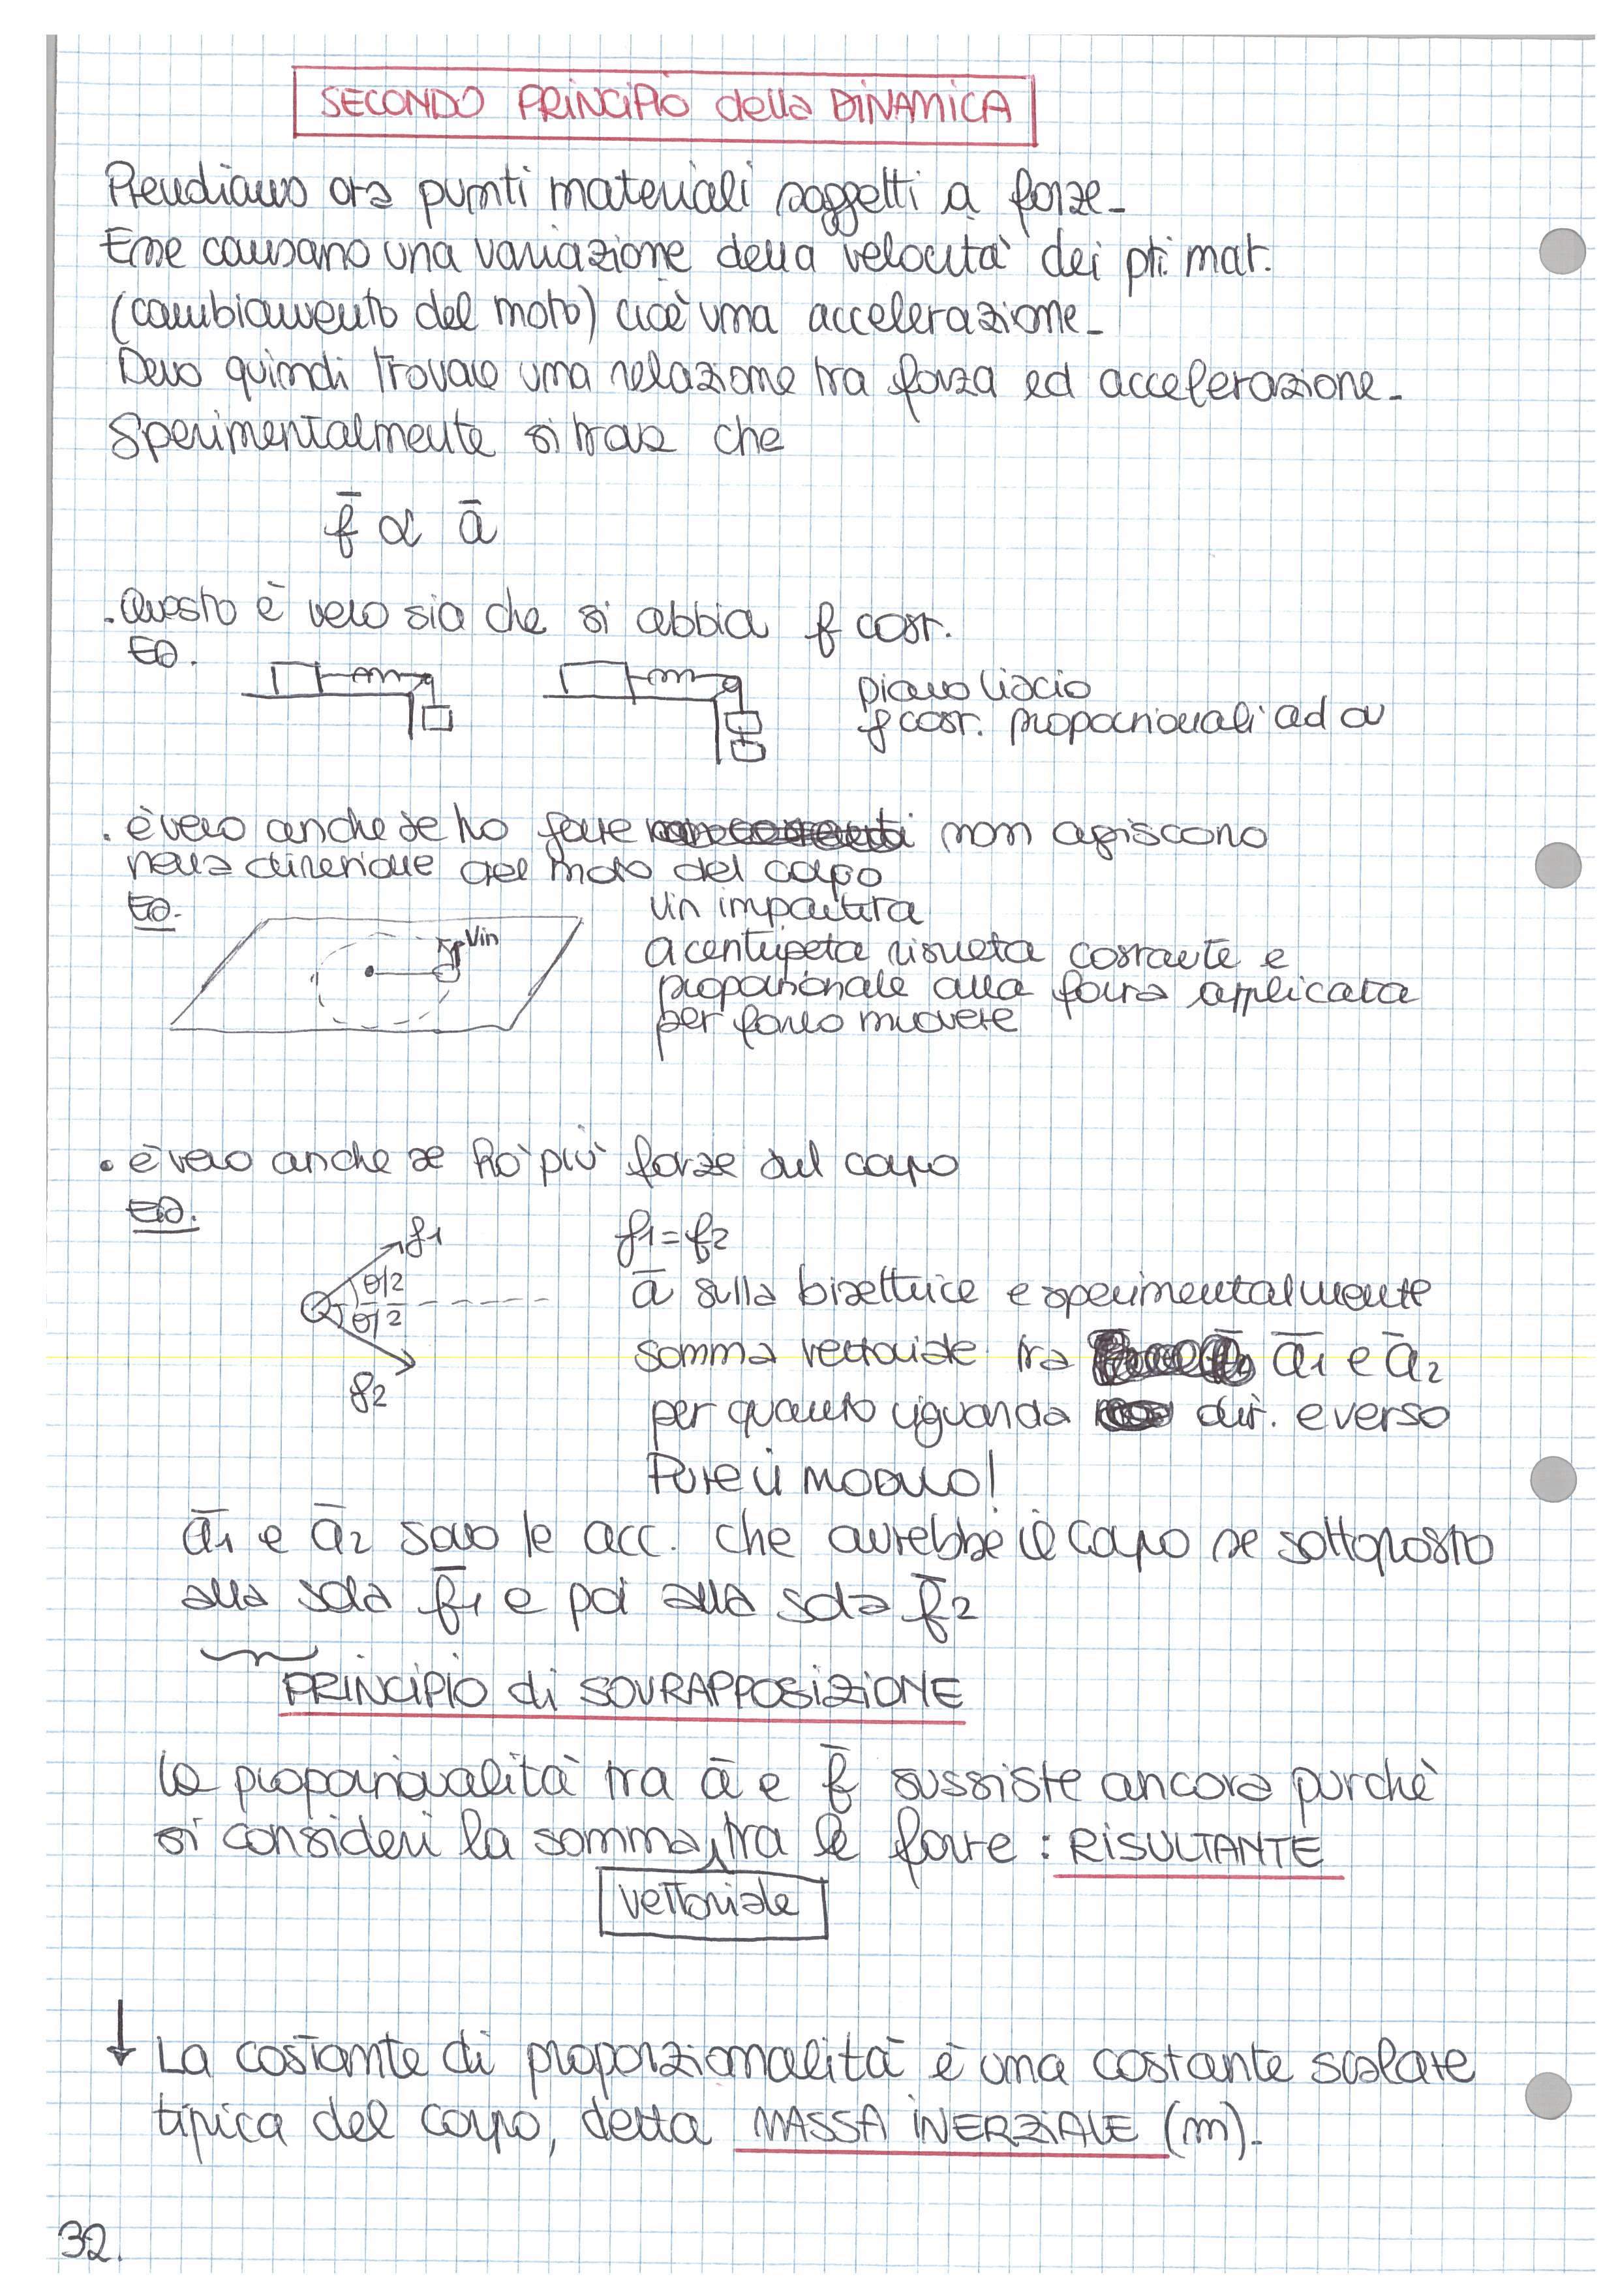 SECONDO PRINCIPIO della DINAMICA
Prendiamo ora punti materiali soggetti a forze.
Esse causano una variazione della velocità dei pti mat.
(cambiamento del moto) cioè una accelerazione.
Devo quindi trovare una relazione tra forza ed accelerazione.
Sperimentalmente si trova che
f̄ ∝ ā
. Questo è vero sia che si abbia f cost.
ES.
piano liscio
f cost. proporzionali ad a
. è vero anche se ho forze non agiscono
nella direzione del moto del corpo
ES.
Vin
Vin impartita
a centripeta risulta costante e
proporzionale alla forza applicata
per farlo muovere
. è vero anche se ho più forze sul corpo
ES.
f1
θ/2
θ/2
f2
f1 = f2
ā sulla bisettrice e sperimentalmente
somma vettoriale tra ā1 e ā2
per quanto riguarda dir. e verso
Pure il modulo!
ā1 e ā2 sono le acc. che avrebbe il corpo se sottoposto
alla sola f̄1 e poi alla sola f̄2
PRINCIPIO di SOVRAPPOSIZIONE
la proporzionalità tra ā e f̄ sussiste ancora purchè
si consideri la somma tra le forze : RISULTANTE
vettoriale
↓ La costante di proporzionalità è una costante scalare
tipica del corpo, detta MASSA INERZIALE (m).
32.